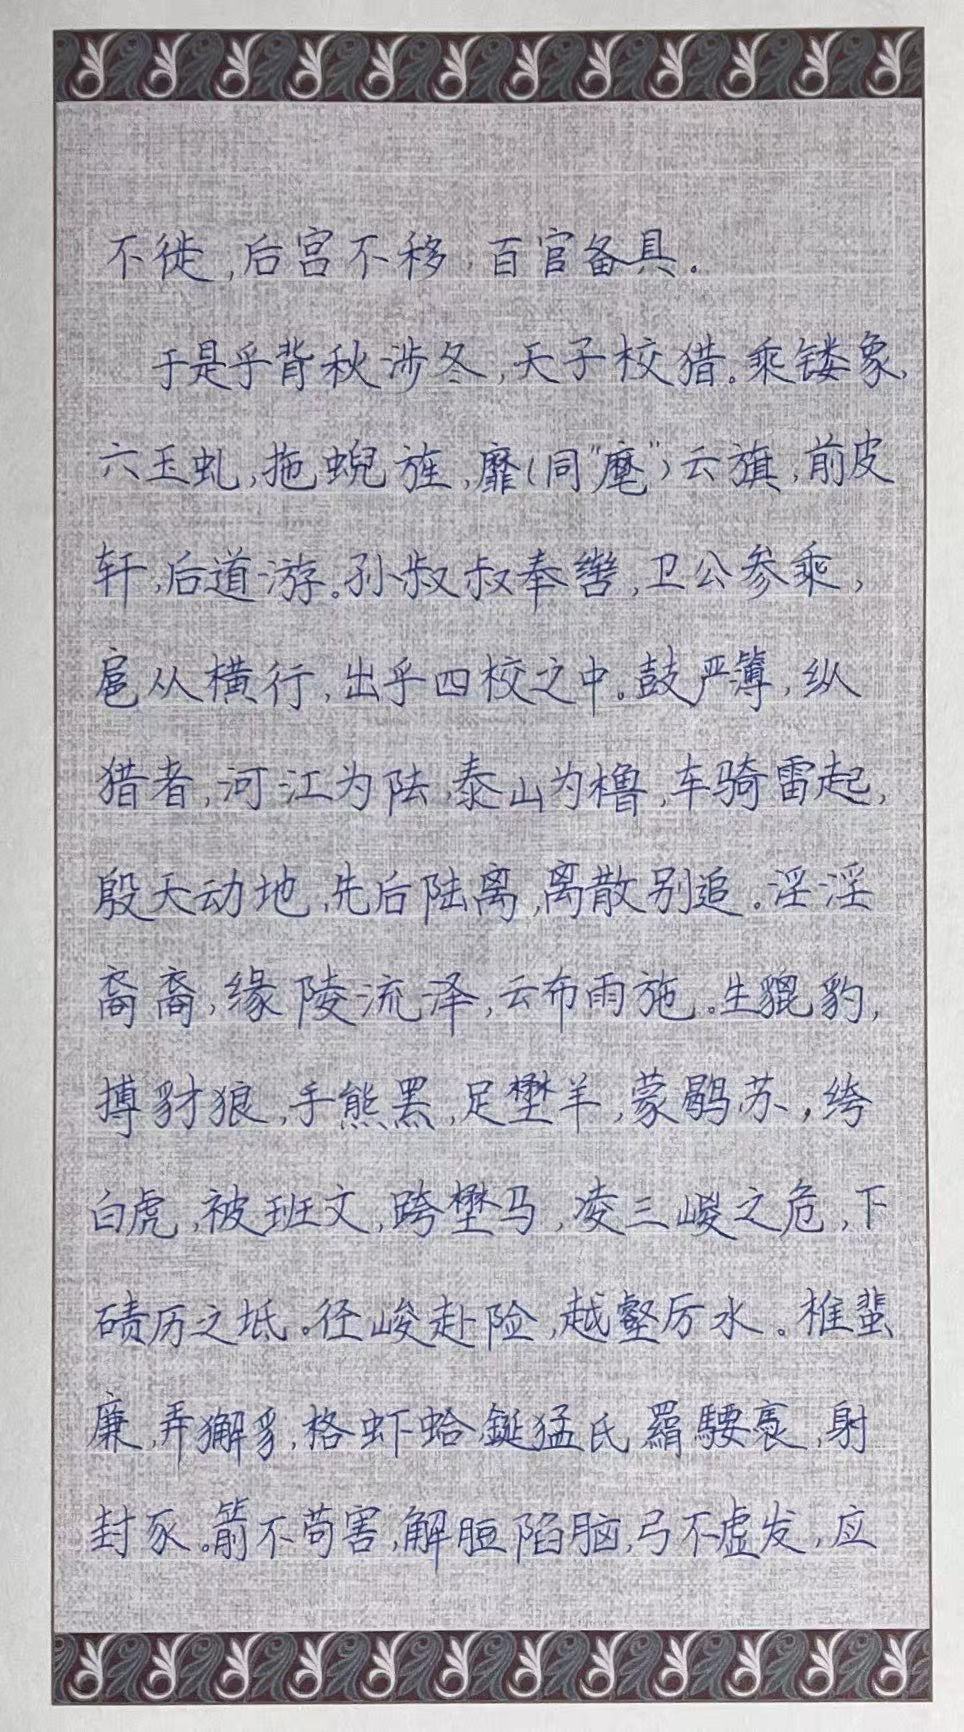 不徙，后宫不移，百官备具。
于是乎背秋涉冬，天子校猎。乘镂象，
六玉虬，拖蜺旌，靡（同“麾”）云旗，前皮
轩，后道游。孙叔叔奉辔，卫公参乘，
扈从横行，出乎四校之中。鼓严簿，纵
猎者，河江为阹，泰山为橹，车骑雷起，
殷天动地，先后陆离，离散别追。淫淫
裔裔，缘陵流泽，云布雨施。生貔豹，
搏豺狼，手熊罴，足壄羊，蒙鹖苏，绔
白虎，被班文，跨壄马，凌三嵕之危，下
碛历之坻。径峻赴险，越壑厉水。椎蜚
廉，弄獬豸，格虾蛤，鋋猛氏，羂騕褭，射
封豕。箭不苟害，解脰陷脑，弓不虚发，应